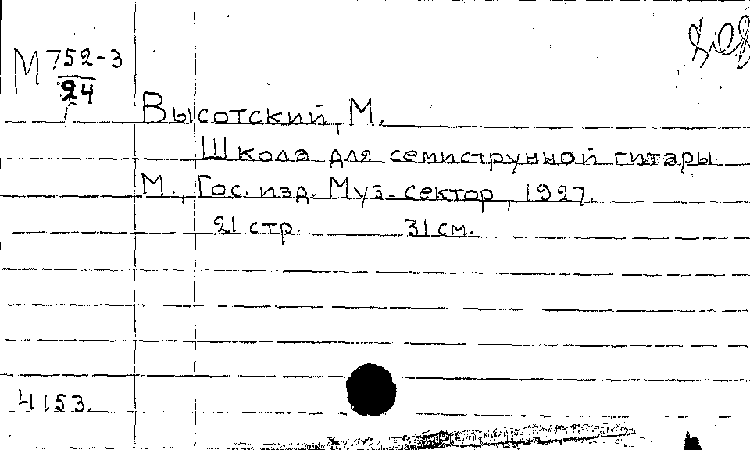 М 752-3
24
Высотский, М.
Школа для семиструнной гитары
М., Гос. изд. Муз. сектор, 1927.
21 стр. 31 см.
4153.